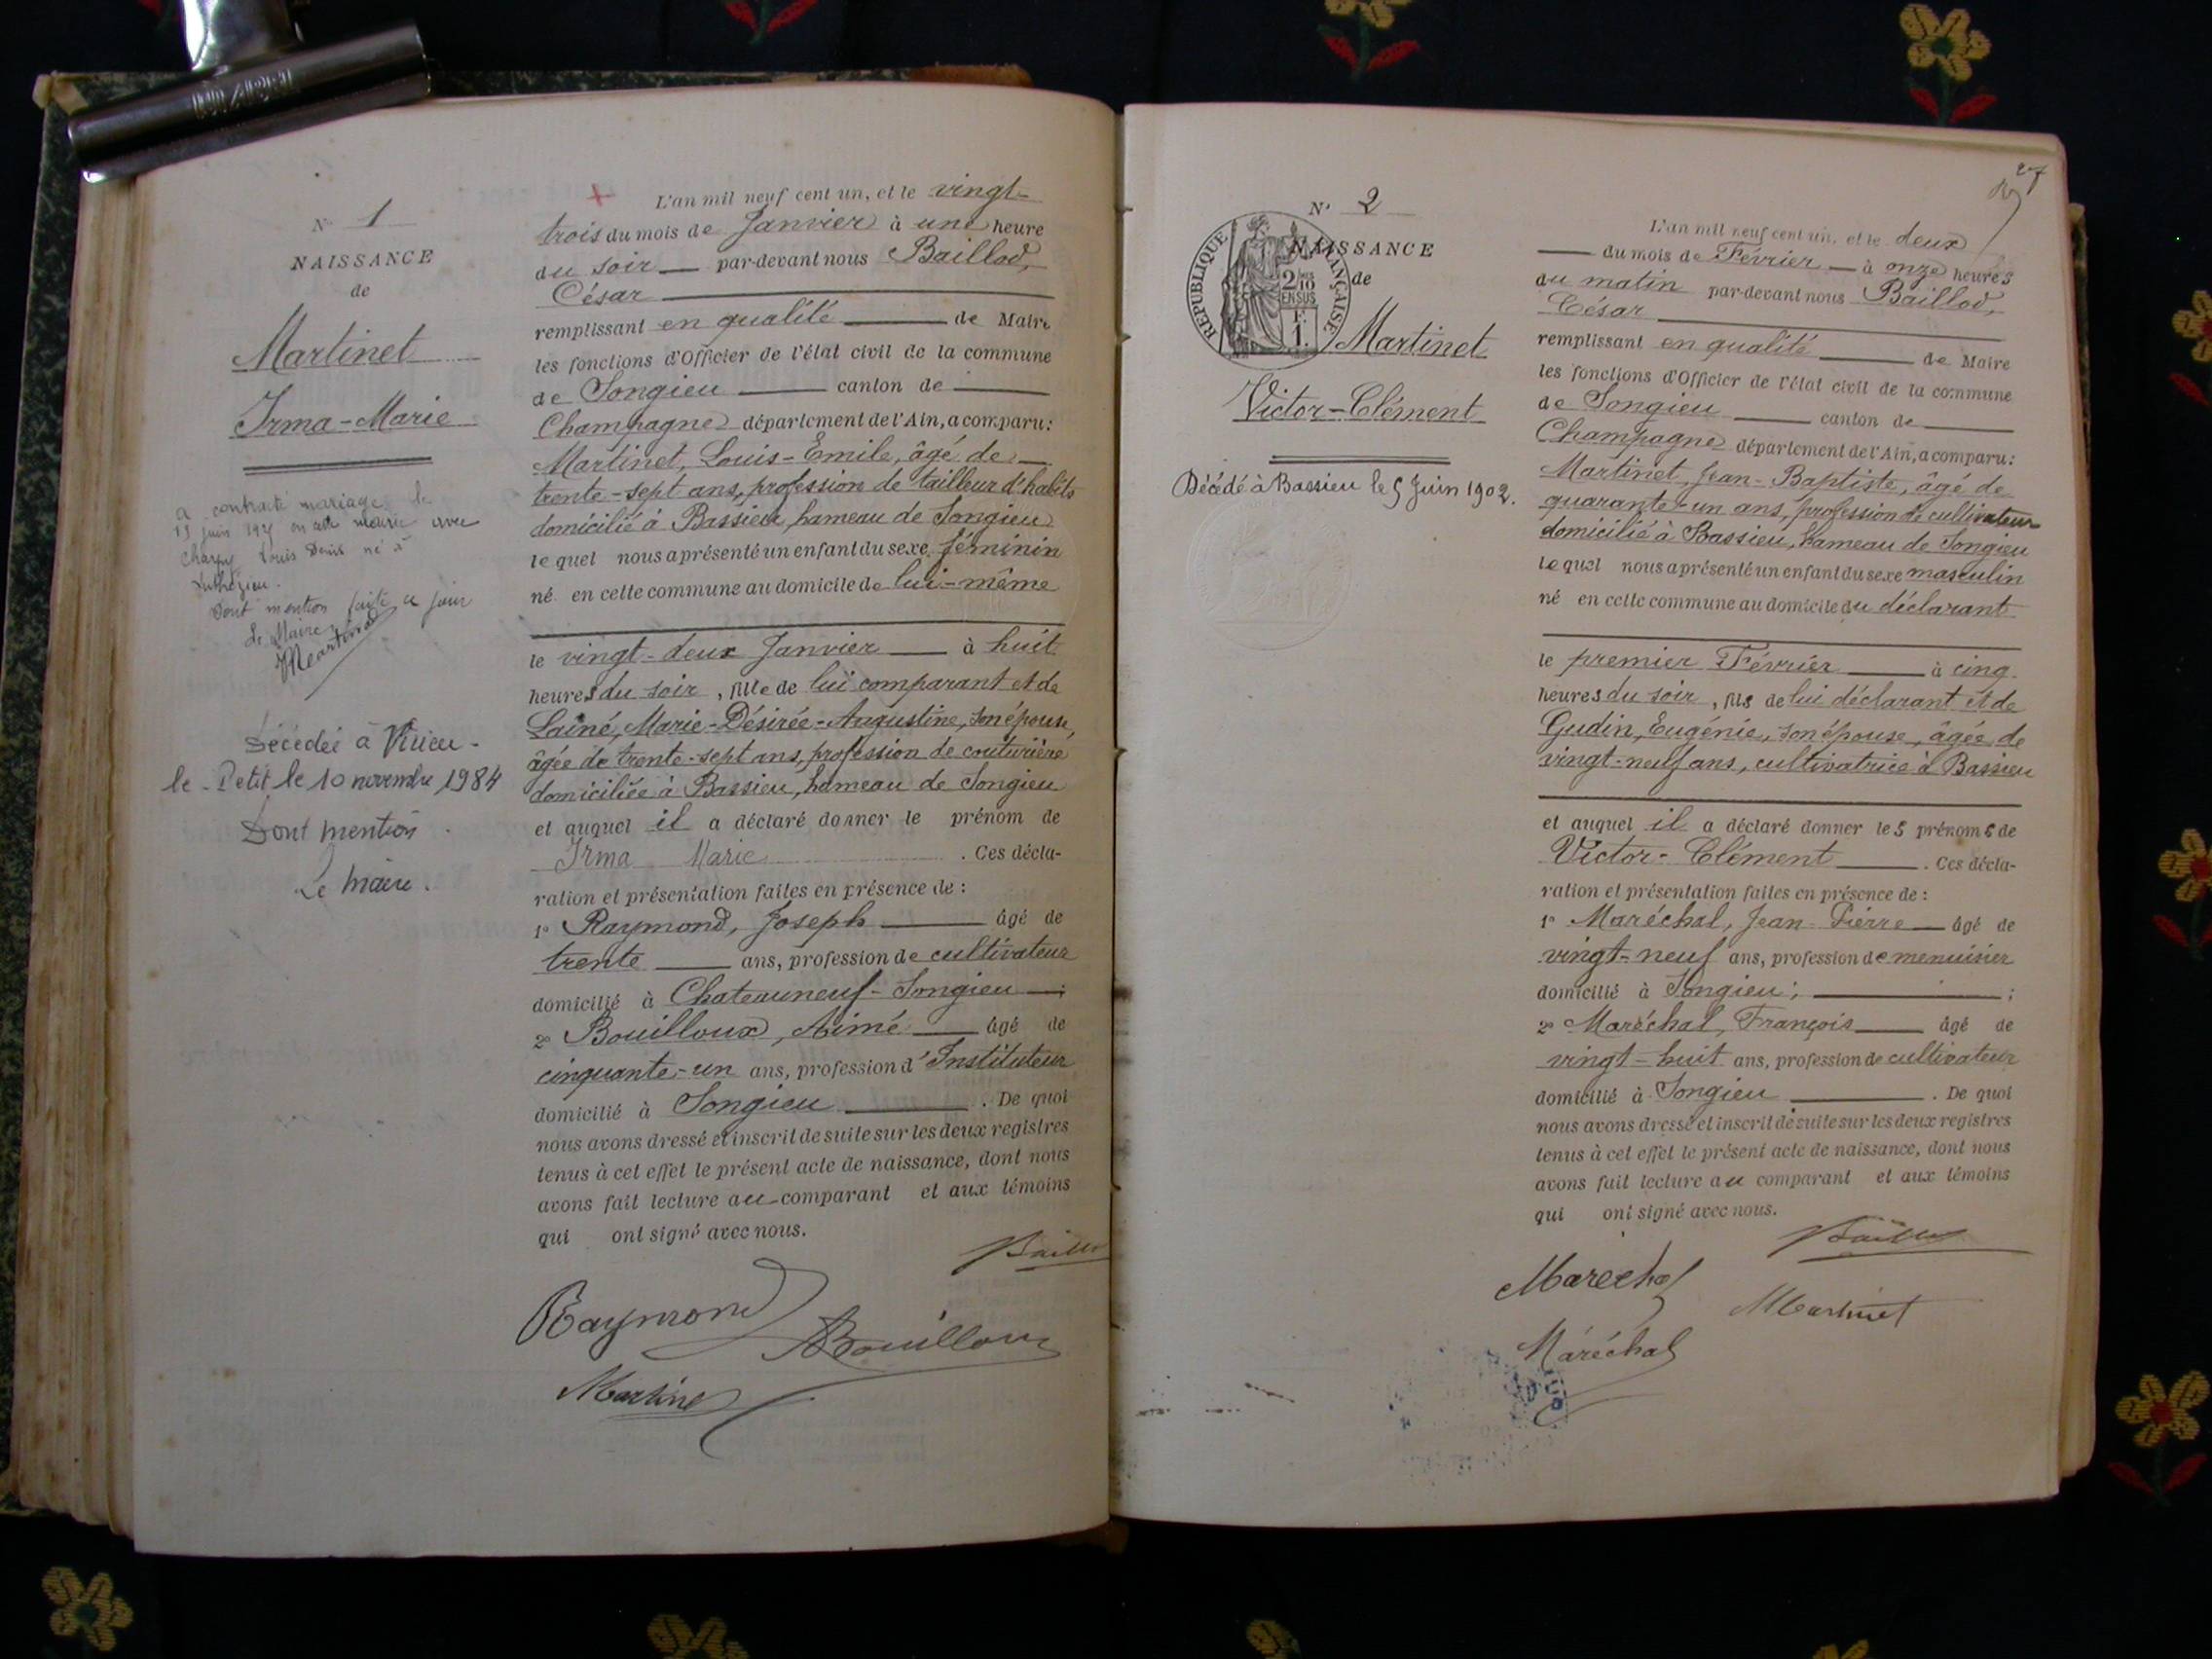 N° 1
NAISSANCE
de
Martinet
Irma-Marie
a contracté mariage le
en mairie avec
Louis Denis né à
Dont mention faite ce jour
Le Maire
Martinet
Décédée à Virieu-
le-Petit le 10 novembre 1984
Dont mention
Le Maire.
L'an mil neuf cent un, et le vingt-
trois du mois de Janvier à une heure
du soir par-devant nous Baillod,
César
remplissant en qualité de Maire
les fonctions d'Officier de l'état civil de la commune
de Songieu canton de
Champagne département de l'Ain, a comparu:
Martinet, Louis-Emile, âgé de
trente-sept ans, profession de tailleur d'habits
domicilié à Bassieu, hameau de Songieu
lequel nous a présenté un enfant du sexe féminin
né en cette commune au domicile de lui-même
le vingt-deux Janvier à huit
heures du soir, fille de lui comparant et de
Lainé, Marie-Désirée-Augustine, son épouse,
âgée de trente-sept ans, profession de couturière
domiciliée à Bassieu, hameau de Songieu
et auquel il a déclaré donner le prénom de
Irma Marie. Ces décla-
ration et présentation faites en présence de :
1° Raymond, Joseph âgé de
trente ans, profession de cultivateur
domicilié à Chateauneuf-Songieu ;
2° Bouilloux, Aimé âgé de
cinquante-un ans, profession d'Instituteur
domicilié à Songieu. De quoi
nous avons dressé et inscrit de suite sur les deux registres
tenus à cet effet le présent acte de naissance, dont nous
avons fait lecture au comparant et aux témoins
qui ont signé avec nous.
Raymond
Bouilloux
Martinet
27
N° 2
NAISSANCE
de
REPUBLIQUE FRANÇAISE
2/10
EN SUS
F.
1.
Martinet
Victor-Clément
Décédé à Bassieu le 5 Juin 1902.
L'an mil neuf cent un, et le deux
du mois de Février à onze heures
du matin par-devant nous Baillod,
César
remplissant en qualité de Maire
les fonctions d'Officier de l'état civil de la commune
de Songieu canton de
Champagne département de l'Ain, a comparu:
Martinet, Jean-Baptiste, âgé de
quarante-un ans, profession de cultivateur
domicilié à Bassieu, hameau de Songieu
lequel nous a présenté un enfant du sexe masculin
né en cette commune au domicile du déclarant
le premier Février à cinq
heures du soir, fils de lui déclarant et de
Gudin, Eugénie, son épouse, âgée de
vingt-neuf ans, cultivatrice à Bassieu
et auquel il a déclaré donner les prénoms de
Victor-Clément. Ces décla-
ration et présentation faites en présence de :
1° Maréchal, Jean-Pierre âgé de
vingt-neuf ans, profession de menuisier
domicilié à Songieu ;
2° Maréchal, François âgé de
vingt-huit ans, profession de cultivateur
domicilié à Songieu. De quoi
nous avons dressé et inscrit de suite sur les deux registres
tenus à cet effet le présent acte de naissance, dont nous
avons fait lecture au comparant et aux témoins
qui ont signé avec nous.
Marechal
Martinet
Maréchal